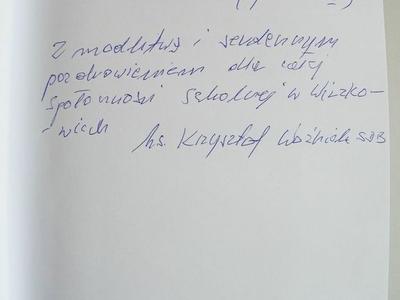 Z modlitwą i serdecznym
pozdrowieniem dla całej
społeczności szkolnej w Wiczko-
wicach
ks. Krzysztof Woźniak SDB